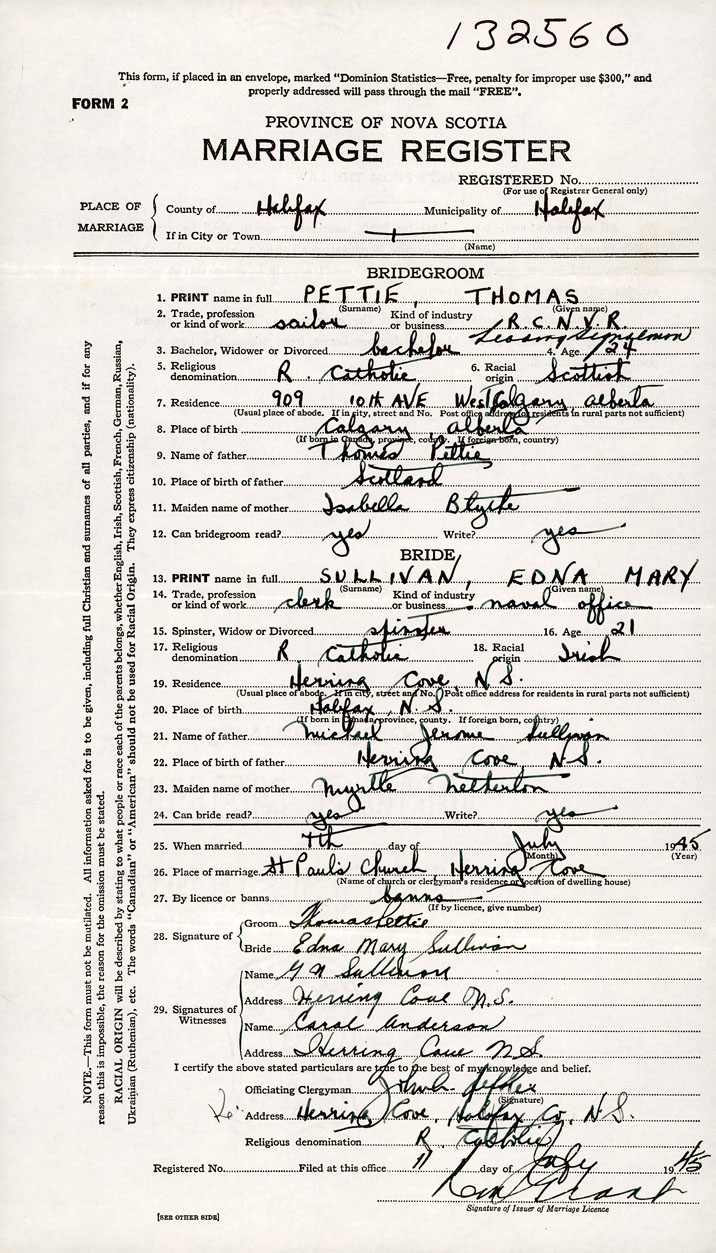 132560
This form, if placed in an envelope, marked "Dominion Statistics—Free, penalty for improper use $300," and
properly addressed will pass through the mail "FREE".
FORM 2
PROVINCE OF NOVA SCOTIA
MARRIAGE REGISTER
REGISTERED No.
(For use of Registrar General only)
PLACE OF MARRIAGE
County of Halifax Municipality of Halifax
If in City or Town
(Name)
BRIDEGROOM
1. PRINT name in full PETTIE, THOMAS
(Surname) (Given name)
2. Trade, profession or kind of work sailor Kind of industry or business R.C.N.V.R.
Signalman
3. Bachelor, Widower or Divorced bachelor 4. Age 24
5. Religious denomination R. Catholic 6. Racial origin Scottish
7. Residence 909 10th AVE West Calgary alberta
(Usual place of abode. If in city, street and No. Post office address for residents in rural parts not sufficient)
8. Place of birth Calgary, alberta
(If born in Canada, province, county. If foreign born, country)
9. Name of father Thomas Pettie
10. Place of birth of father Scotland
11. Maiden name of mother Isabella Blythe
12. Can bridegroom read? yes Write? yes
BRIDE
13. PRINT name in full SULLIVAN, EDNA MARY
(Surname) (Given name)
14. Trade, profession or kind of work clerk Kind of industry or business naval office
15. Spinster, Widow or Divorced spinster 16. Age 21
17. Religious denomination R Catholic 18. Racial origin Irish
19. Residence Herring Cove, N.S.
(Usual place of abode. If in city, street and No. Post office address for residents in rural parts not sufficient)
20. Place of birth Halifax, N.S.
(If born in Canada, province, county. If foreign born, country)
21. Name of father Michael Jerome Sullivan
22. Place of birth of father Herring Cove, N.S.
23. Maiden name of mother Myrtle Netherton
24. Can bride read? yes Write? yes
25. When married 7th day of July 1945
(Month) (Year)
26. Place of marriage St Paul's Church, Herring Cove
(Name of church or clergyman's residence or location of dwelling house)
27. By licence or banns banns
(If by licence, give number)
28. Signature of
Groom Thomas Pettie
Bride Edna Mary Sullivan
29. Signatures of Witnesses
Name G N Sullivan
Address Herring Cove N.S.
Name Carol Anderson
Address Herring Cove N.S.
I certify the above stated particulars are true to the best of my knowledge and belief.
Officiating Clergyman
(Signature)
Address Herring Cove, Halifax Co, N.S.
Religious denomination R. Catholic
Registered No. Filed at this office 11 day of July 1945
Grant
Signature of Issuer of Marriage Licence
[SEE OTHER SIDE]
NOTE.—This form must not be mutilated. All information asked for is to be given, including full Christian and surnames of all parties, and if for any
reason this is impossible, the reason for the omission must be stated.
RACIAL ORIGIN will be described by stating to what people or race each of the parents belongs, whether English, Irish, Scottish, French, German, Russian,
Ukrainian (Ruthenian), etc. The words "Canadian" or "American" should not be used for Racial Origin. They express citizenship (nationality).